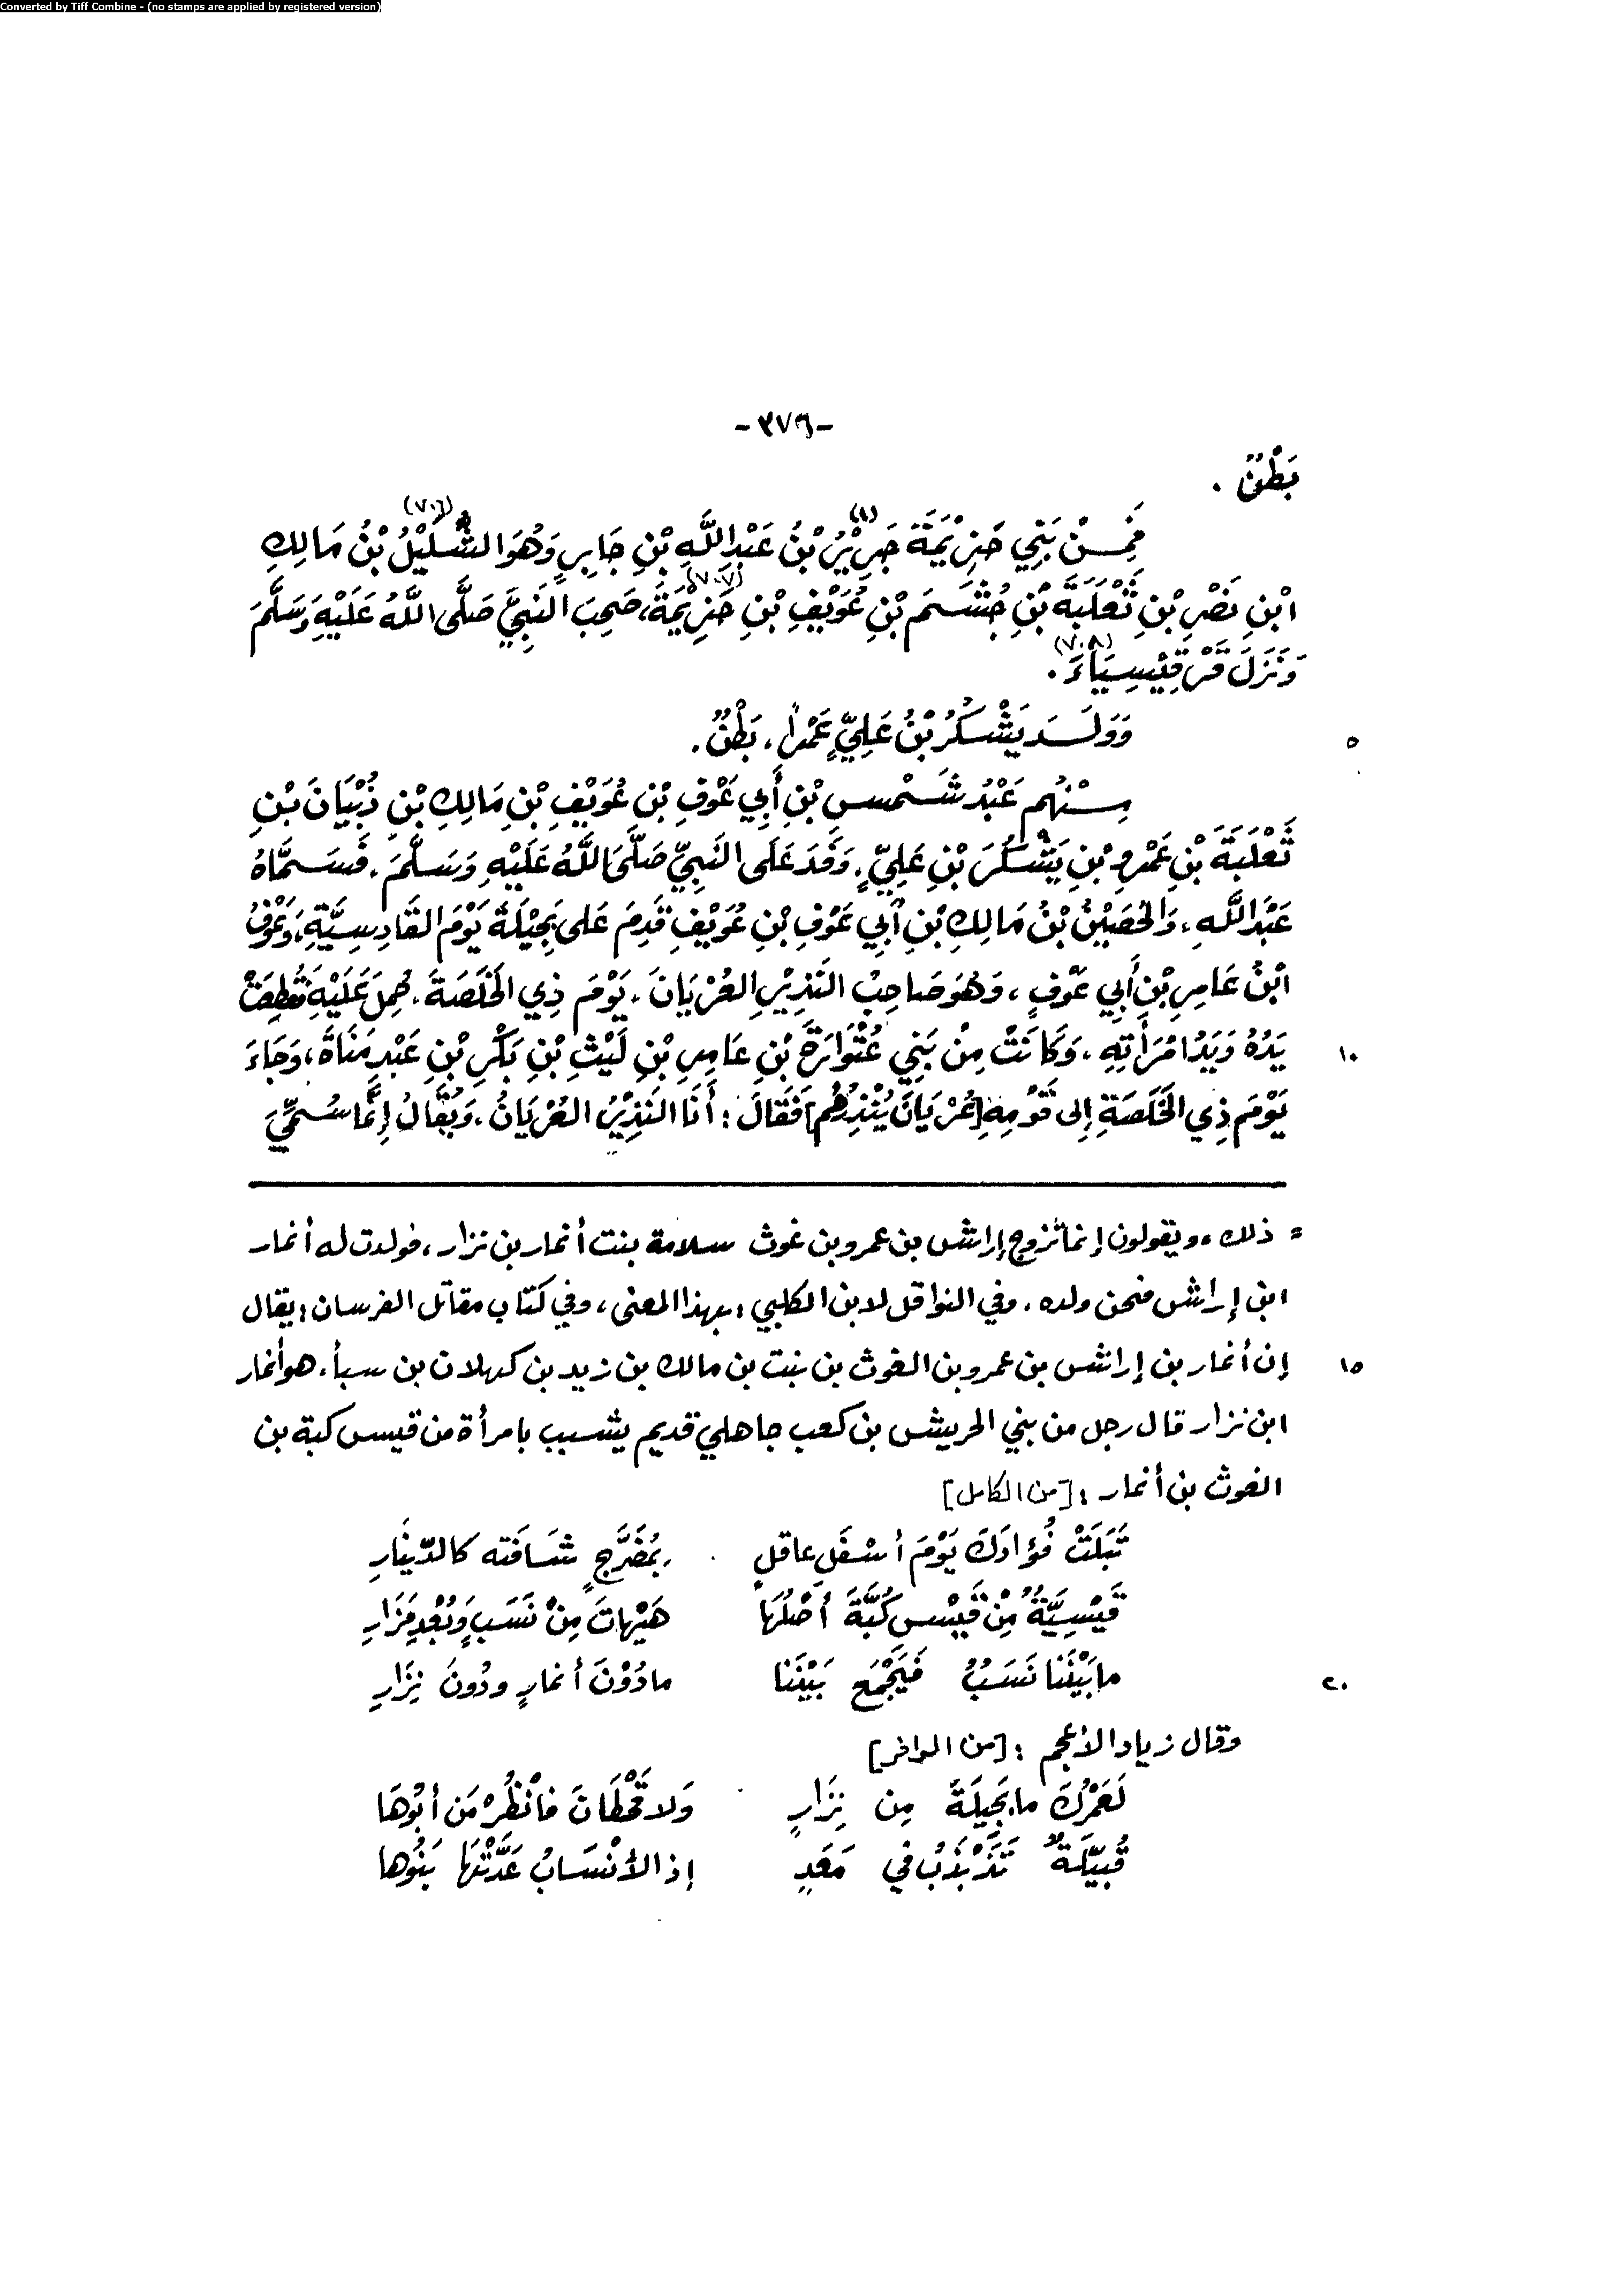 Converted by Tiff Combine - (no stamps are applied by registered version)
-٣٧٦-
بَطْنٌ .
فَمِنْ بَنِي حَزِيْمَةَ جَرِيْرُ(١) بْنُ عَبْدِ اللَّهِ بْنِ جَابِرٍ وَهُوَ الشَّلِيْلُ(٧٠٦) بْنُ مَالِكِ
ابْنِ نَصْرِ بْنِ ثَعْلَبَةَ بْنِ جُشَمَ بْنِ عُوَيْفِ بْنِ حَزِيْمَةَ(٧٠٧)، صَحِبَ النَبِيَّ صَلَّى اللَّهُ عَلَيْهِ وَسَلَّمَ
وَنَزَلَ قَرْقِيْسِيَاءَ(٧٠٨) .
٥ وَوَلَدَ يَشْكُرُ بْنُ عَلِيٍّ عَمْراً ، بَطْنٌ .
مِنْهُم عَبْدُ شَمْسِ بْنِ أَبِي عَوْفِ بْنِ عُوَيْفِ بْنِ مَالِكِ بْنِ ذُبْيَانَ بْنِ
ثَعْلَبَةَ بْنِ عَمْرِو بْنِ يَشْكُرَ بْنِ عَلِيٍّ ، وَفَدَ عَلَى النَبِيِّ صَلَّى اللَّهُ عَلَيْهِ وَسَلَّمَ ، فَسَمَّاهُ
عَبْدَ اللَّهِ ، وَالحُصَيْنُ بْنُ مَالِكِ بْنِ أَبِي عَوْفِ بْنِ عُوَيْفِ قَدِمَ عَلى بَجِيْلَةَ يَوْمَ القَادِسِيَّةِ ، وَعَوْفُ
ابْنُ عَامِرِ بْنِ أَبِي عَوْفٍ ، وَهُوَ صَاحِبُ النَذِيْرِ العُرْيَانَ ، يَوْمَ ذِي الخَلَصَةَ ، حُمِلَ عَلَيْهِ فَقُطِعَتْ
١٠ يَدُهُ وَيَدُ امْرَأَتِهِ ، وَكَانَتْ مِنْ بَنِي عُتْوَارَةَ بْنِ عَامِرِ بْنِ لَيْثِ بْنِ بَكْرِ بْنِ عَبْدِ مَنَاةَ ، وَجَاءَ
يَوْمَ ذِي الخَلَصَةِ إِلى قَوْمِهِ [عُرْيَانَ يُنْذِرُهُم] فَقَالَ : أَنَا النَذِيْرُ العُرْيَانُ ، وَيُقَالُ إِنَّمَا سُمِّيَ
= ذلك ، ويقولون إنما تزوج إراش بن عمرو بن غوث سلامة بنت أنمار بن نزار ، فولدت له أنمار
ابن إراش فنحن ولده ، وفي النواقل لابن الكلبي : بهذا المعنى ، وفي كتاب مقاتل الفرسان : يقال
١٥ إن أنمار بن إراش بن عمرو بن الغوث بن نبت بن مالك بن زيد بن كهلان بن سبأ ، هو أنمار
ابن نزار قال رجل من بني الحريش بن كعب جاهلي قديم يشبب بامرأة من قيس كبة بن
الغوث بن أنمار : [من الكامل]
تَبَلَتْ فُؤادَكَ يَوْمَ أسْفَلِ عاقلٍ بمُضَرَّجٍ شَافَته كالدّينَارِ
قَيْسِيَّةٌ مِّنْ قَيْسِ كُبَّةَ أصْلُهَا هَيْهاتَ مِنْ نَسَبٍ وَبُعْدِ مَزَارِ
٢٠ ما بَيْنَنا نَسَبٌ فَيَجْمَع بَيْنَنا ما دُوْنَ أنمارٍ ودُونَ نِزَارِ
وقال زياد الأعجم : [من الوافر]
لَعَمْرُكَ ما بَجِيلَةَ مِن نِزَارٍ وَلا قَحْطَانَ فانْظُرْ مَن أبُوْهَا
قُبَيِّلَةٌ تَذَبْذَبُ في مَعَدٍ إذا الأنْسَابُ عَدَّتْهَا بَنُوها